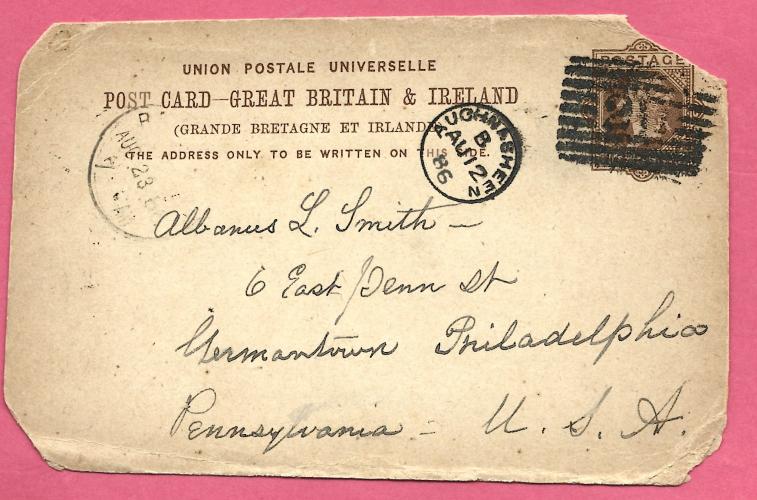 UNION POSTALE UNIVERSELLE
POST CARD—GREAT BRITAIN & IRELAND
(GRANDE BRETAGNE ET IRLANDE)
THE ADDRESS ONLY TO BE WRITTEN ON THIS SIDE.
POSTAGE
AUCHNASHEEN
B
AU 12
86
AUG 23
Albanus L. Smith —
6 East Penn St
Germantown Philadelphia
Pennsylvania — U. S. A.